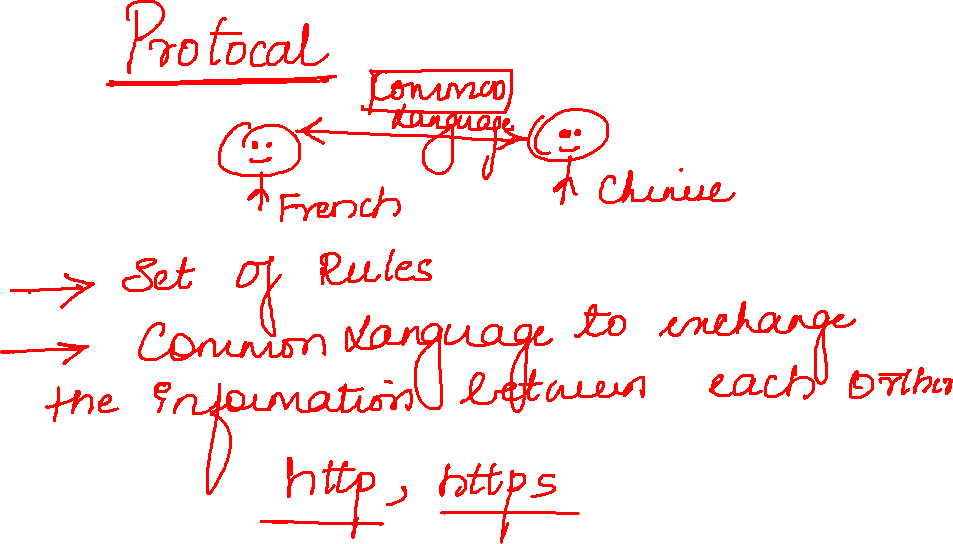 Protocal
Common
Language
French
Chinise
→ Set of Rules
→ Common Language to exchange
the information between each other
http, https